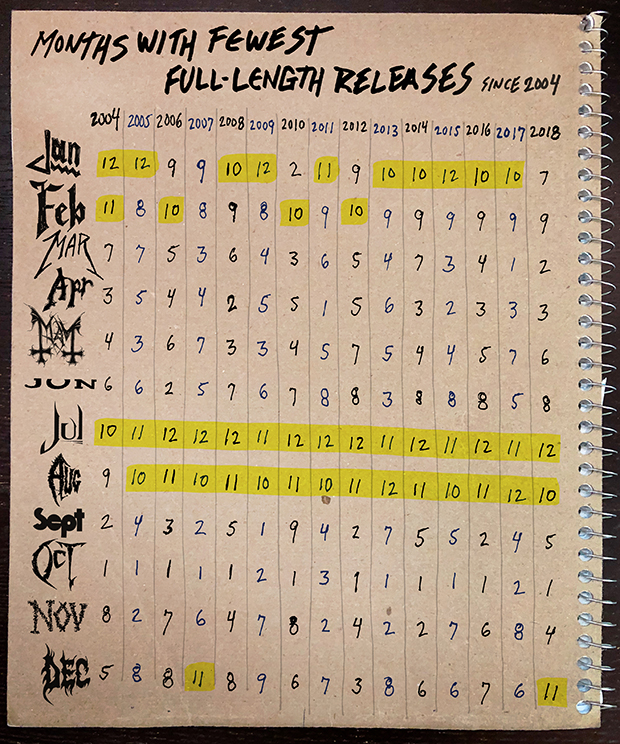 MONTHS WITH FEWEST
FULL-LENGTH RELEASES SINCE 2004
2004 2005 2006 2007 2008 2009 2010 2011 2012 2013 2014 2015 2016 2017 2018
Jan 12 12 9 9 10 12 2 11 9 10 10 12 10 10 7
Feb 11 8 10 8 9 8 10 9 10 9 9 9 9 9 9
MAR 7 7 5 3 6 4 3 6 5 4 7 3 4 1 2
Apr 3 5 4 4 2 5 5 1 5 6 3 2 3 3 3
MAY 4 3 6 7 3 3 4 5 7 5 4 4 5 7 6
JUN 6 6 2 5 7 6 7 8 8 3 8 8 8 5 8
Jul 10 11 12 12 12 11 12 12 12 11 12 11 12 11 12
AUG 9 10 11 10 11 10 11 10 11 12 11 10 11 12 10
Sept 2 4 3 2 5 1 9 4 2 7 5 5 2 4 5
OCT 1 1 1 1 1 2 1 3 1 1 1 1 1 2 1
NOV 8 2 7 6 4 7 8 2 4 2 2 7 6 8 4
DEC 5 8 8 11 8 9 6 7 3 8 6 6 7 6 11